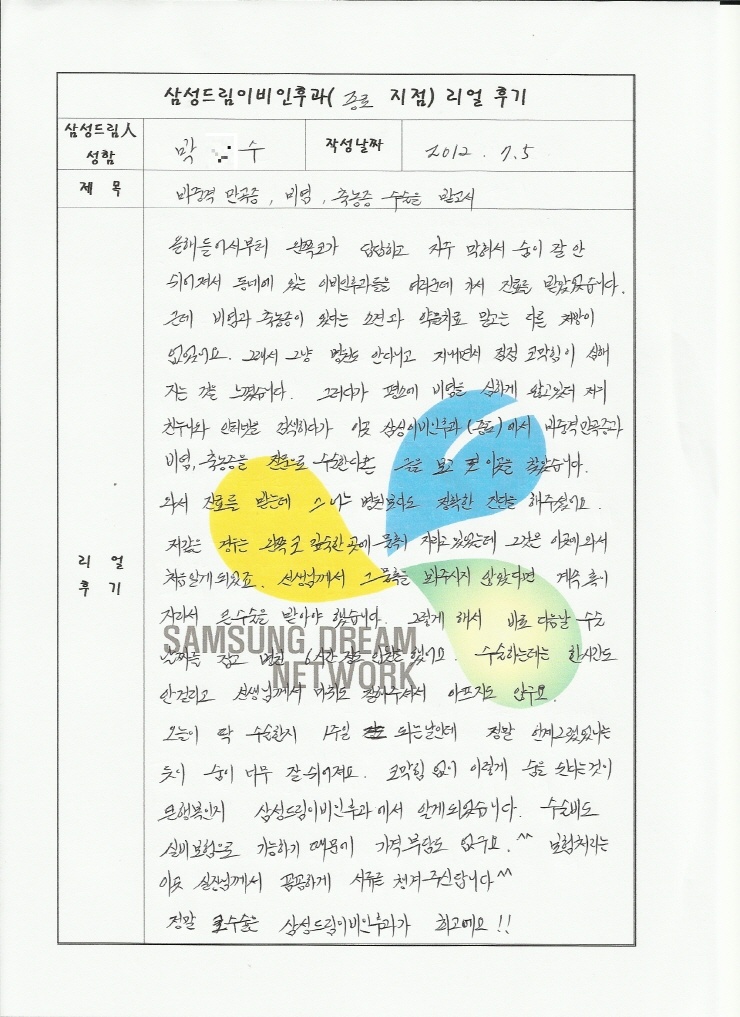 삼성드림이비인후과( 종로 지점) 리얼 후기
삼성드림人 성함
막 수
작성날짜
2012. 7. 5
제 목
비중격 만곡증, 비염, 축농증 수술을 받고서
리 얼 후 기
올해들어서부터 왼쪽코가 답답하고 자주 막혀서 숨이 잘 안
쉬어져서 동네에 있는 이비인후과들을 여러군데 가서 진료를 받았었습니다.
근데 비염과 축농증이 있다는 소견과 약물치료 말고는 다른 처방이
없었어요. 그래서 그냥 병원도 안다니고 지내면서 점점 코막힘이 심해
지는 것을 느꼈습니다. 그러다가 평소에 비염을 심하게 앓고있던 저기
친누나와 인터넷을 검색하다가 이곳 삼성이비인후과(종로)에서 비중격만곡증과
비염, 축농증을 전문으로 수술한다는 글을 보고 이곳을 찾았습니다.
와서 진료를 받는데 어느 병원보다도 정확한 진단을 해주셨어요.
저같은 경우는 왼쪽 코 깊숙한 곳에 물혹이 자라고 있었는데 그것은 이곳에 와서
처음알게 되었죠. 선생님께서 그 물혹을 봐주시지 않았다면 계속 혹이
자라서 큰수술을 받아야 했습니다. 그렇게 해서 바로 다음날 수술
날짜를 잡고 병원 6시간 정도 입원을 했어요. 수술하는데는 한시간도
SAMSUNG DREAM NETWORK
안걸리고 선생님께서 마취도 잘해주셔서 아프지도 않구요.
오늘이 딱 수술한지 1주일 되는날인데 정말 언제그랬었냐는
듯이 숨이 너무 잘 쉬어져요. 코막힘 없이 이렇게 숨을 쉰다는것이
큰행복인지 삼성드림이비인후과에서 알게되었습니다. 수술비도
실비보험으로 가능하기 때문에 가격 부담도 없구요.^^ 보험처리는
이곳 실장님께서 꼼꼼하게 서류를 챙겨주신답니다^^
정말 코수술은 삼성드림이비인후과가 최고예요!!